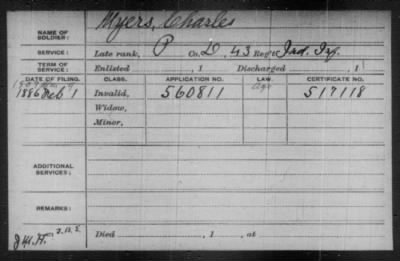 NAME OF SOLDIER: Myers, Charles
SERVICE: Late rank, P Co. D, 43 Reg't Ind. Inf.
TERM OF SERVICE: Enlisted , 1 Discharged , 1
DATE OF FILING. CLASS. APPLICATION NO. LAW. CERTIFICATE NO.
1886 Feb 1 Invalid, 560811 Age 517118
Widow,
Minor,
ADDITIONAL SERVICES:
REMARKS:
Died , 1 , at